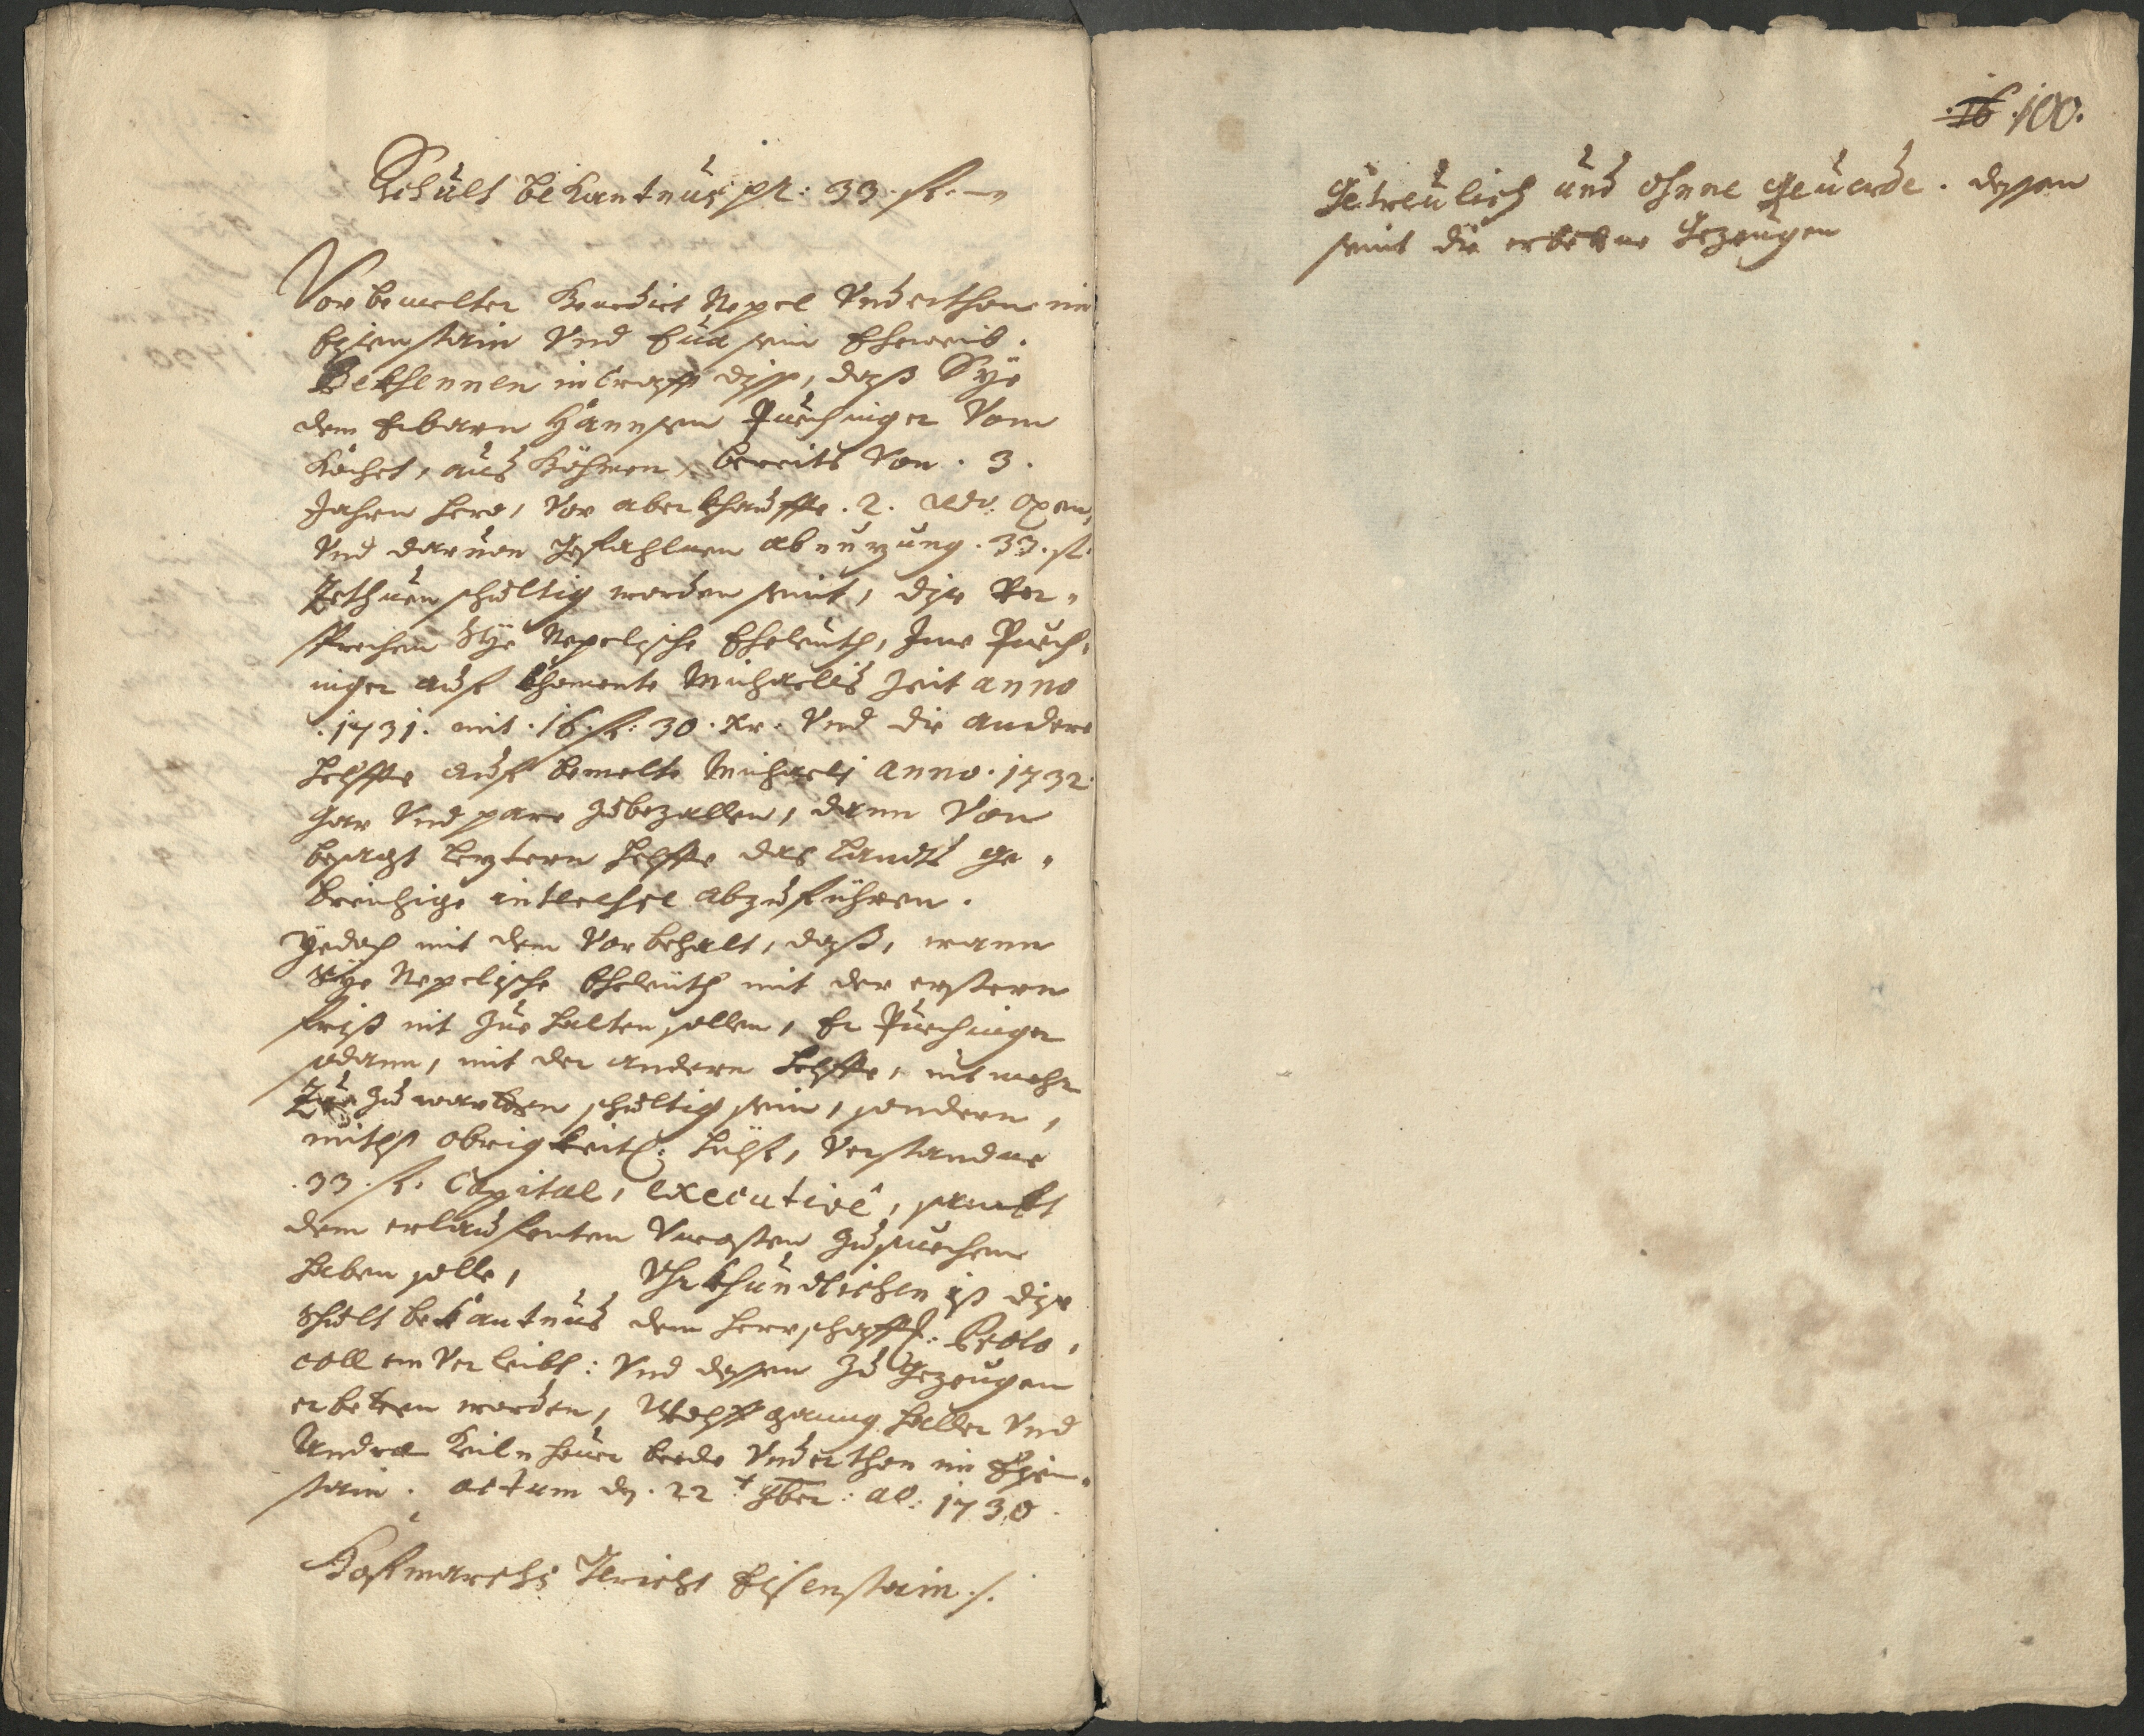 Schult bekantnus pr: 33. fl. —
Vorbemelter Benedict Nepel Underthon im
Eysenstain Und Eua sein Eheweib.
Bekhennen in Crafft diss, daß Sye
dem Erbarn Hännsen Puechinger Vom
Kochet, aus Böhmen, bereits Von . 3 .
Jahren hero, Vor aberkhauffte . 2 . Rdo. Oxen,
Und daruon gefahlnen abnuzung . 33 . fl.
Zethuen schultig worden seint, dise Ver-
sprechen Sye Nepelische Eheleuth, Ime Puech-
inger auf khomente Michaelis Zeit anno
. 1731 . mit . 16 fl: 30 . Xr. Und die andere
helffte auf bemelte Michaeli anno . 1732 .
gar Und pare zubezallen, dann Von
besagt leztern helffte das Landts ge-
breichige interesse abzuführen.
Yedoch mit dem Vorbehalt, daß, wann
Sye Nepelische Eheleuth mit der erstern
frist nit Zue halten sollen, Er Puechinger
sodann, mit der andern helffte, nit mehr
Zue zuwartten schultig sein, sondern,
mitls obrigkeitl: hülf, Verstandne
. 33 . fl. Capital, executivé, sambt
dem erlauffenten Uncosten zusuechen
haben solle, Uhrkhundtlichen ist dise
Schult bekantnus dem herrschafftl: Proto-
coll einverleibt: Und dessen zu Gezeugen
erbetten worden, Wolffgang Haller Und
Andre Keilnhouer beede Underthon im Eysen-
stain. Actum dn. 22 t. 9ber: ao: 1730 .
Hofmarchs Gericht Eisenstain ./.
16 . 100.
Getreulich und ohne geuerde . dessen
seint die erbettne Gezeugen